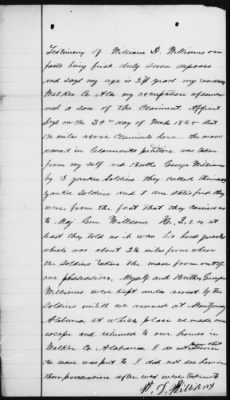 Testimony of William D. Williams who
being first duly sworn deposes
and says my age is 37 years my residence
Walker Co. Ala my occupation a farmer
and a son of the Claimant. Affiant
says on the 29th day of Mch 1865 that
miles above Claimants home. The mare
named in Claimants petition was taken
from my self and Brother George Williams
by 3 yankee Soldiers they called themselves
yankee Soldiers and I am satisfied they
were from the fact that they carried us
to Maj Genl Head quarters
which was about miles from where
the Soldiers taken the mare from out of
our possession. Myself and Brother George
Williams were kept under arrest by the
Soldiers untill we arrived at Montgomery
Alabama at which place we made our
escape and returned to our homes in
Walker Co. Alabama. I do not know what use
the mare was put to I did not see her in
their possession after we were taken to
W. D. Williams